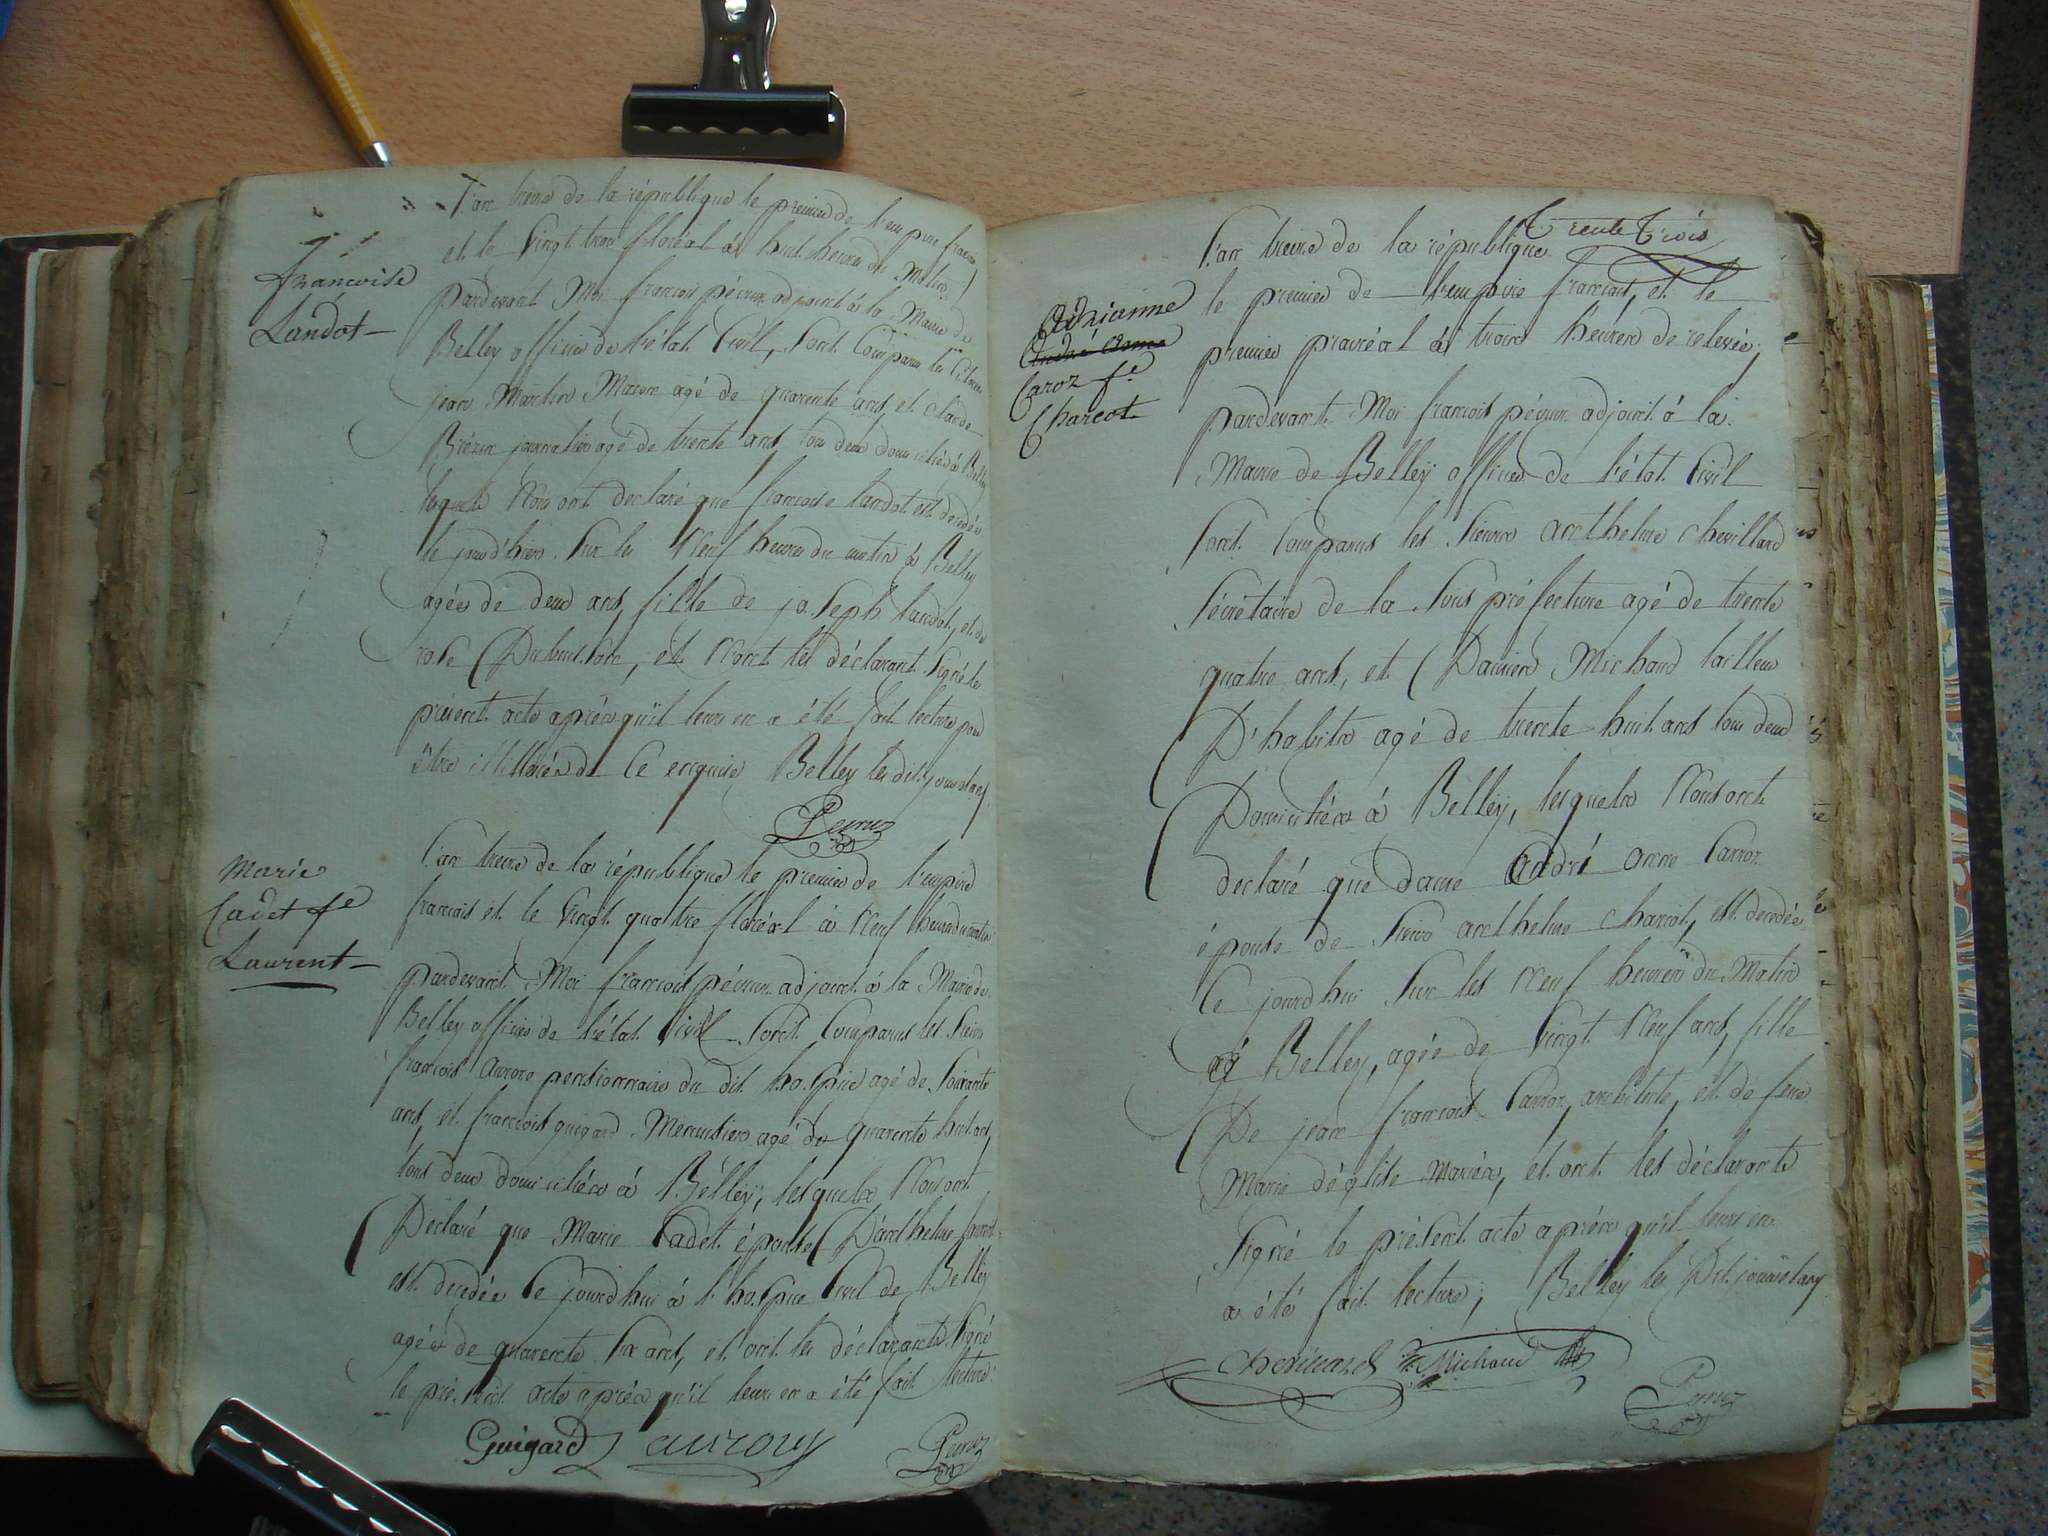 françoise
Landot
L'an treize de la république le premier de l'empire français
et le vingt trois floréal à huit heures du Matin
pardevant Moi françois pévrux adjoint à la Mairie de
Belley officier de l'état Civil, Sont Comparus les
jean Martin Masson agé de quarente ans, et Claude
journalier agé de trente ans, tou deux domiciliés à Belley
lequels Nous ont declaré que francoise landot est decedée
le jour d'hier Sur les Neuf heures du matin à Belley
agée de deux ans, fille de joseph landot, et de
rose Dubuisson, et N'ont les déclarant Signé le
présent acte après qu'il leurs en a été fait lecture pour
être de ce enquis, Belley les dits jour et an
marie
Cadet fe
Laurent
L'an treize de la république le premier de l'empire
francois et le vingt quatre floréal à Neuf heures du matin
pardevant Moi francois pévrux adjoint à la Mairie de
Belley officier de l'état Civil Sont Comparus les Sieurs
francois Aurore pensionnaire du dit hospice agé de Soixante
ans, et francois guigard Menuisier agé de quarente huit ans,
tous deux domiciliés à Belley, lesquels Nous ont
Déclaré que Marie Cadet épouse D'anthelme
est decedée Ce jourd'hui à l'hospice Civil de Belley
agée de quarente Six ans, et ont les déclarants Signé
le présent acte après qu'il leurs en a été fait lecture
Guigard aurory
Trente Trois
Adrianne
André Anne
Caroz fe
Charcot
L'an treize de la république
le premier de l'empire francais, et le
premier prairéal à trois heures de relevée,
pardevant Moi francois pévrux adjoint à la
Mairie de Belley officier de l'état Civil
Sont Comparus les Sieurs anthelme chevillard
Sécrétaire de la Sous préfecture agé de trente
quatre ans, et Damien Michaud tailleur
D'habits agé de trente huit ans tou deux
Domiciliés à Belley, lesquels Nous ont
declaré que dame André anne Carroz
épouse de Sieur anthelme charcot, est decedée
Ce jourd'hui Sur les Neuf heures du Matin
à Belley, agée de Vingt Neuf ans, fille
De jean francois Carroz, architecte, et de feue
Marie d'église mariés, et ont les déclarants
Signé le présent acte après qu'il leurs en
a été fait lecture; Belley les Dit jour et an
chevillard Michaud